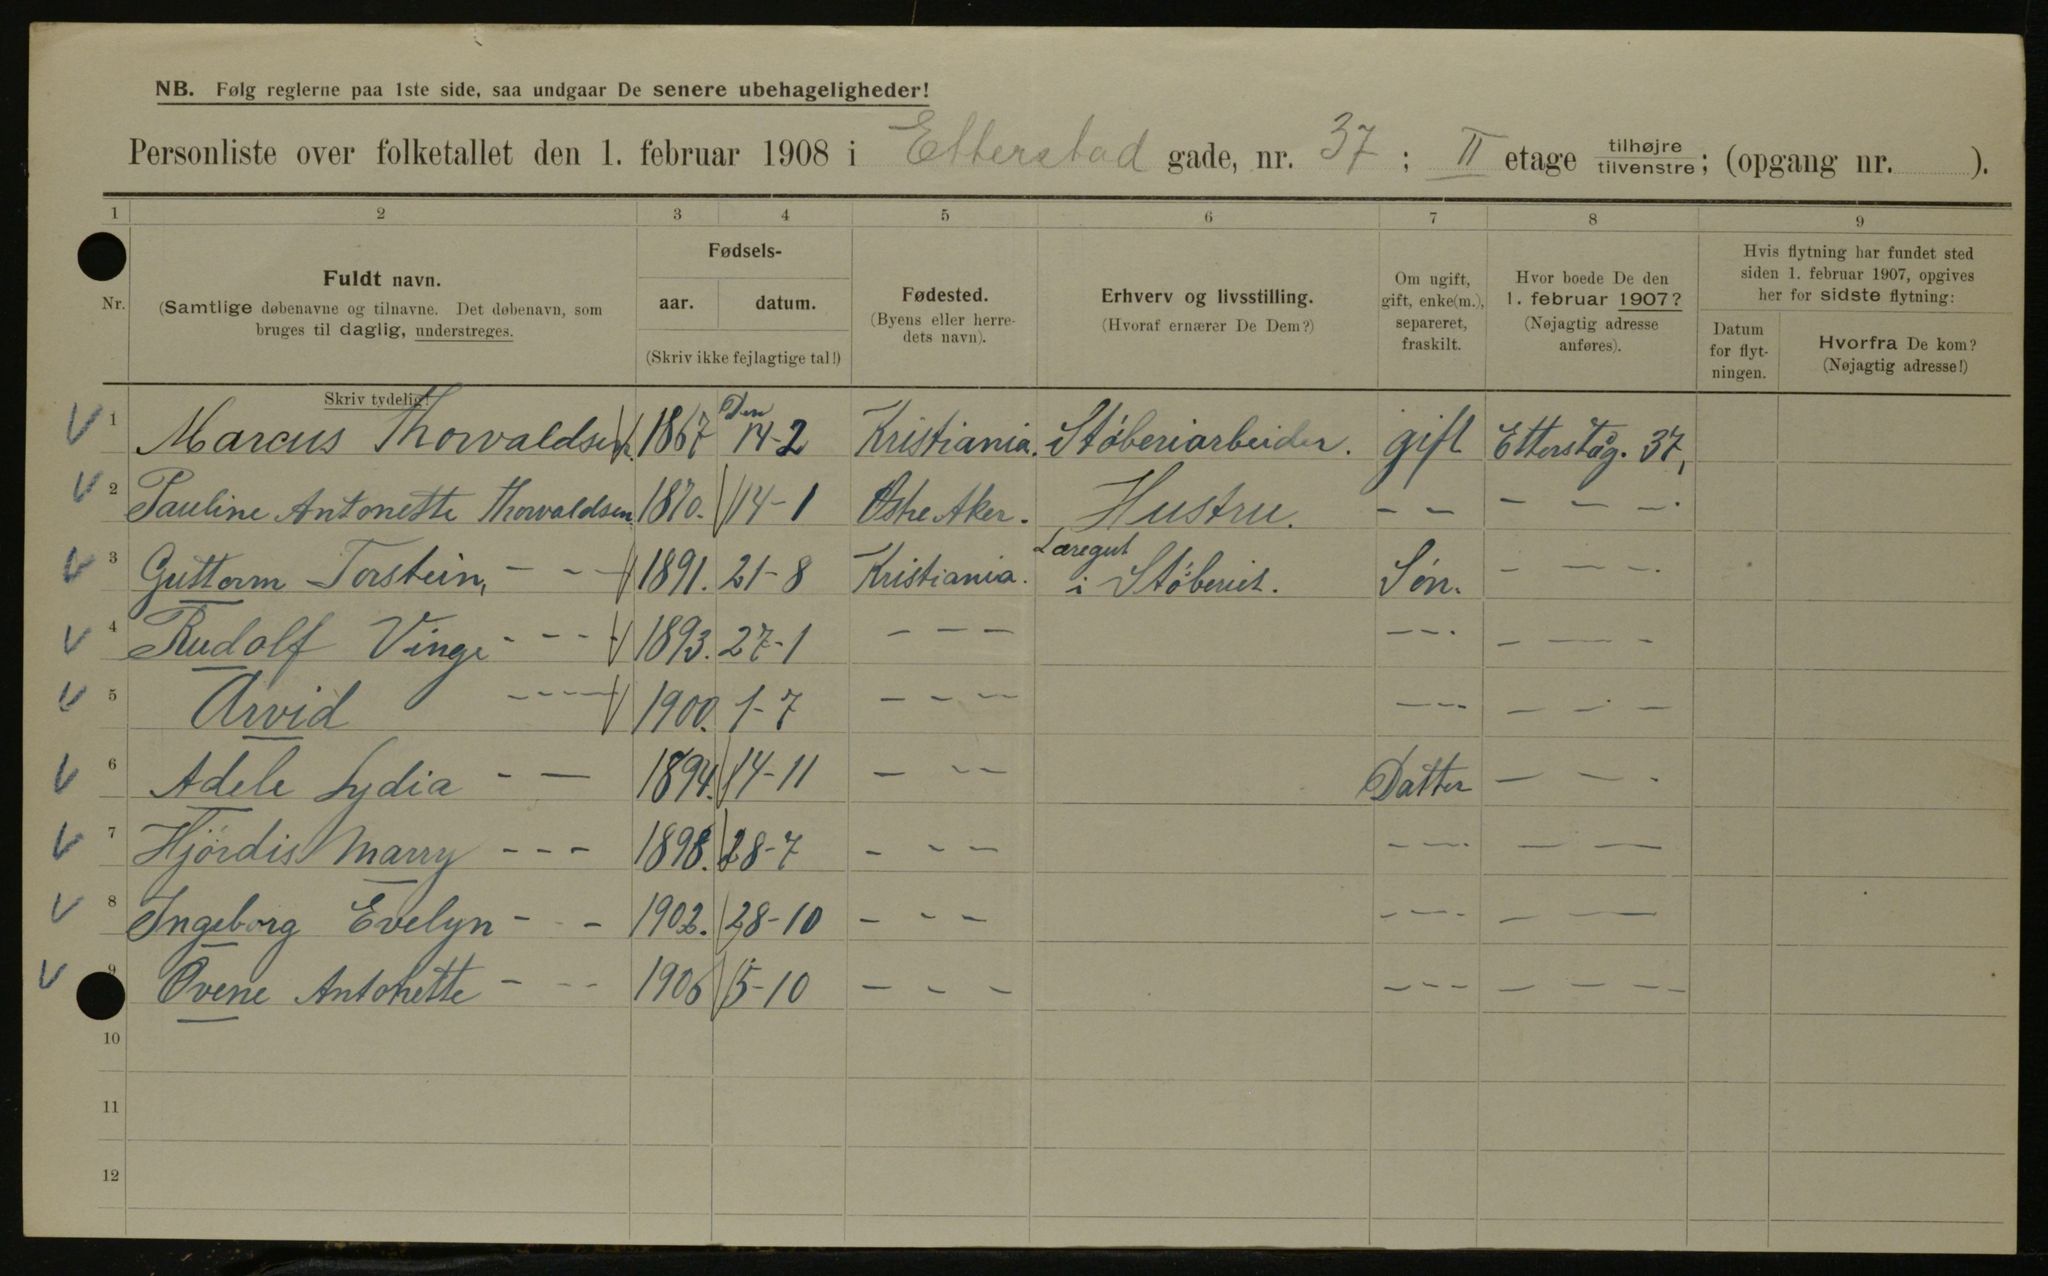 NB. Følg reglerne paa 1ste side, saa undgaar De senere ubehageligheder!
Personliste over folketallet den 1. februar 1908 i Etterstad gade, nr. 37 ; II etage tilhøjre tilvenstre ; (opgang nr. ).
1 2 3 4 5 6 7 8 9
Nr.
Fuldt navn.
(Samtlige døbenavne og tilnavne. Det døbenavn, som
bruges til daglig, understreges.
Skriv tydelig!
Fødsels-
aar. datum.
(Skriv ikke fejlagtige tal!)
Fødested.
(Byens eller herre-
dets navn).
Erhverv og livsstilling.
(Hvoraf ernærer De Dem?)
Om ugift,
gift, enke(m.),
separeret,
fraskilt.
Hvor boede De den
1. februar 1907?
(Nøjagtig adresse
anføres).
Hvis flytning har fundet sted
siden 1. februar 1907, opgives
her for sidste flytning:
Datum
for flyt-
ningen.
Hvorfra De kom?
(Nøjagtig adresse!)
1 Marcus Thorvaldsen. 1867 Den 14-2 Kristiania. Støberiarbeider. gift Etterstdg. 37,
2 Pauline Antonette Thorvaldsen 1870. 14-1 Østre Aker. Hustru. - - - - -
3 Guttorm Torstein, - - - 1891. 21-8 Kristiania. Læregut i Støberiet. Søn. - - - -
4 Rudolf Vinge - - - - 1893. 27-1 - - - - - - - - - -
5 Arvid - - - - 1900. 1-7 - - - - - - - - -
6 Adele Lydia - - 1894. 14-11 - - - Datter - - -
7 Hjørdis Marry - - - 1898. 28-7 - - - - - - - - -
8 Ingeborg Evelyn - - - 1902. 28-10 - - - - - - - - -
9 Ovene Antonette - - - 1906 15-10 - - - - - - - - - - -
10
11
12